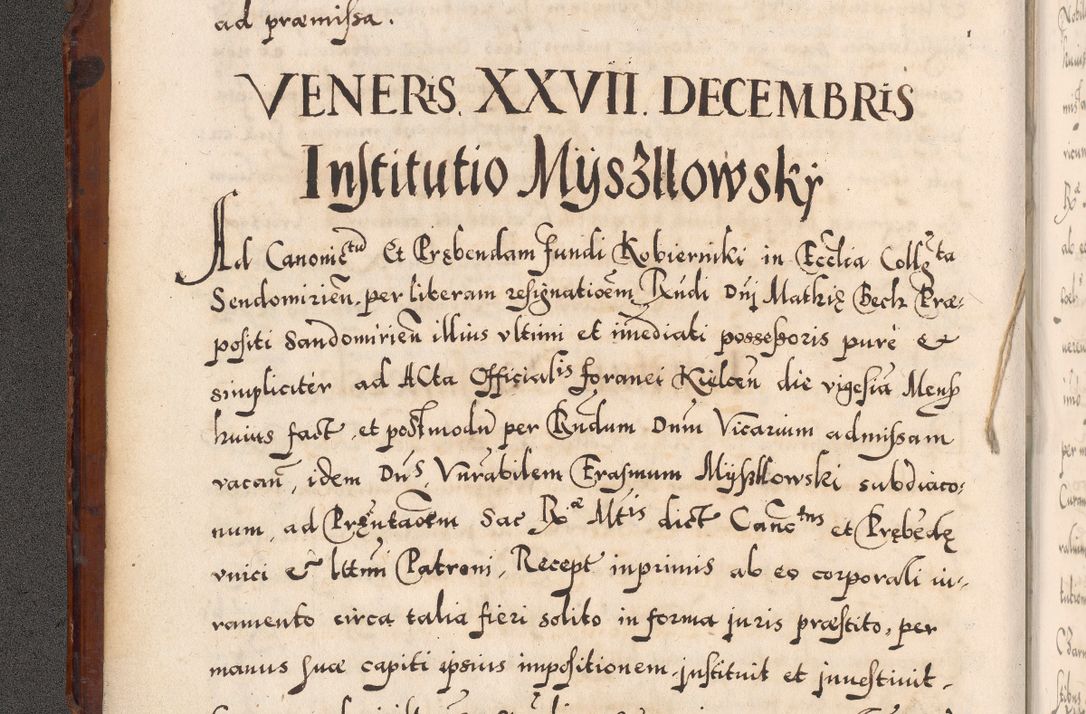 ad præmissa.
VENERIS. XXVII. DECEMBRIS
Institutio Myszllowsky
Ad Canonię^tu Et Prębendam fundi Kobierniki in Eccłia Collg^ta
Sendomirien, per liberam resignatioēm Rndi Dnj Mathię Beck Præ-
positi Sandomirien illius vltimi et imēdiati possessoris purè et
simpliciter ad Acta Official^is foranei Kielcen̄ die vigesia Mens
huius fact, et postmodu per Rndum Dnm Vicarium admissam
vacan̄, idem Dn^s, Vnrabilem Erasmum Myszllowski subdiaco-
num, ad Pręntaoēm Sac R^æ Mt^is dict Canc^tus et Prębēdę
vnici et lttimi Patroni, Recept inprimis ab eo corporali iu-
ramento circa talia fieri solito in forma juris præstito, per
manus suæ capiti ipsius impositionem jnstituit et jnuestiuit.